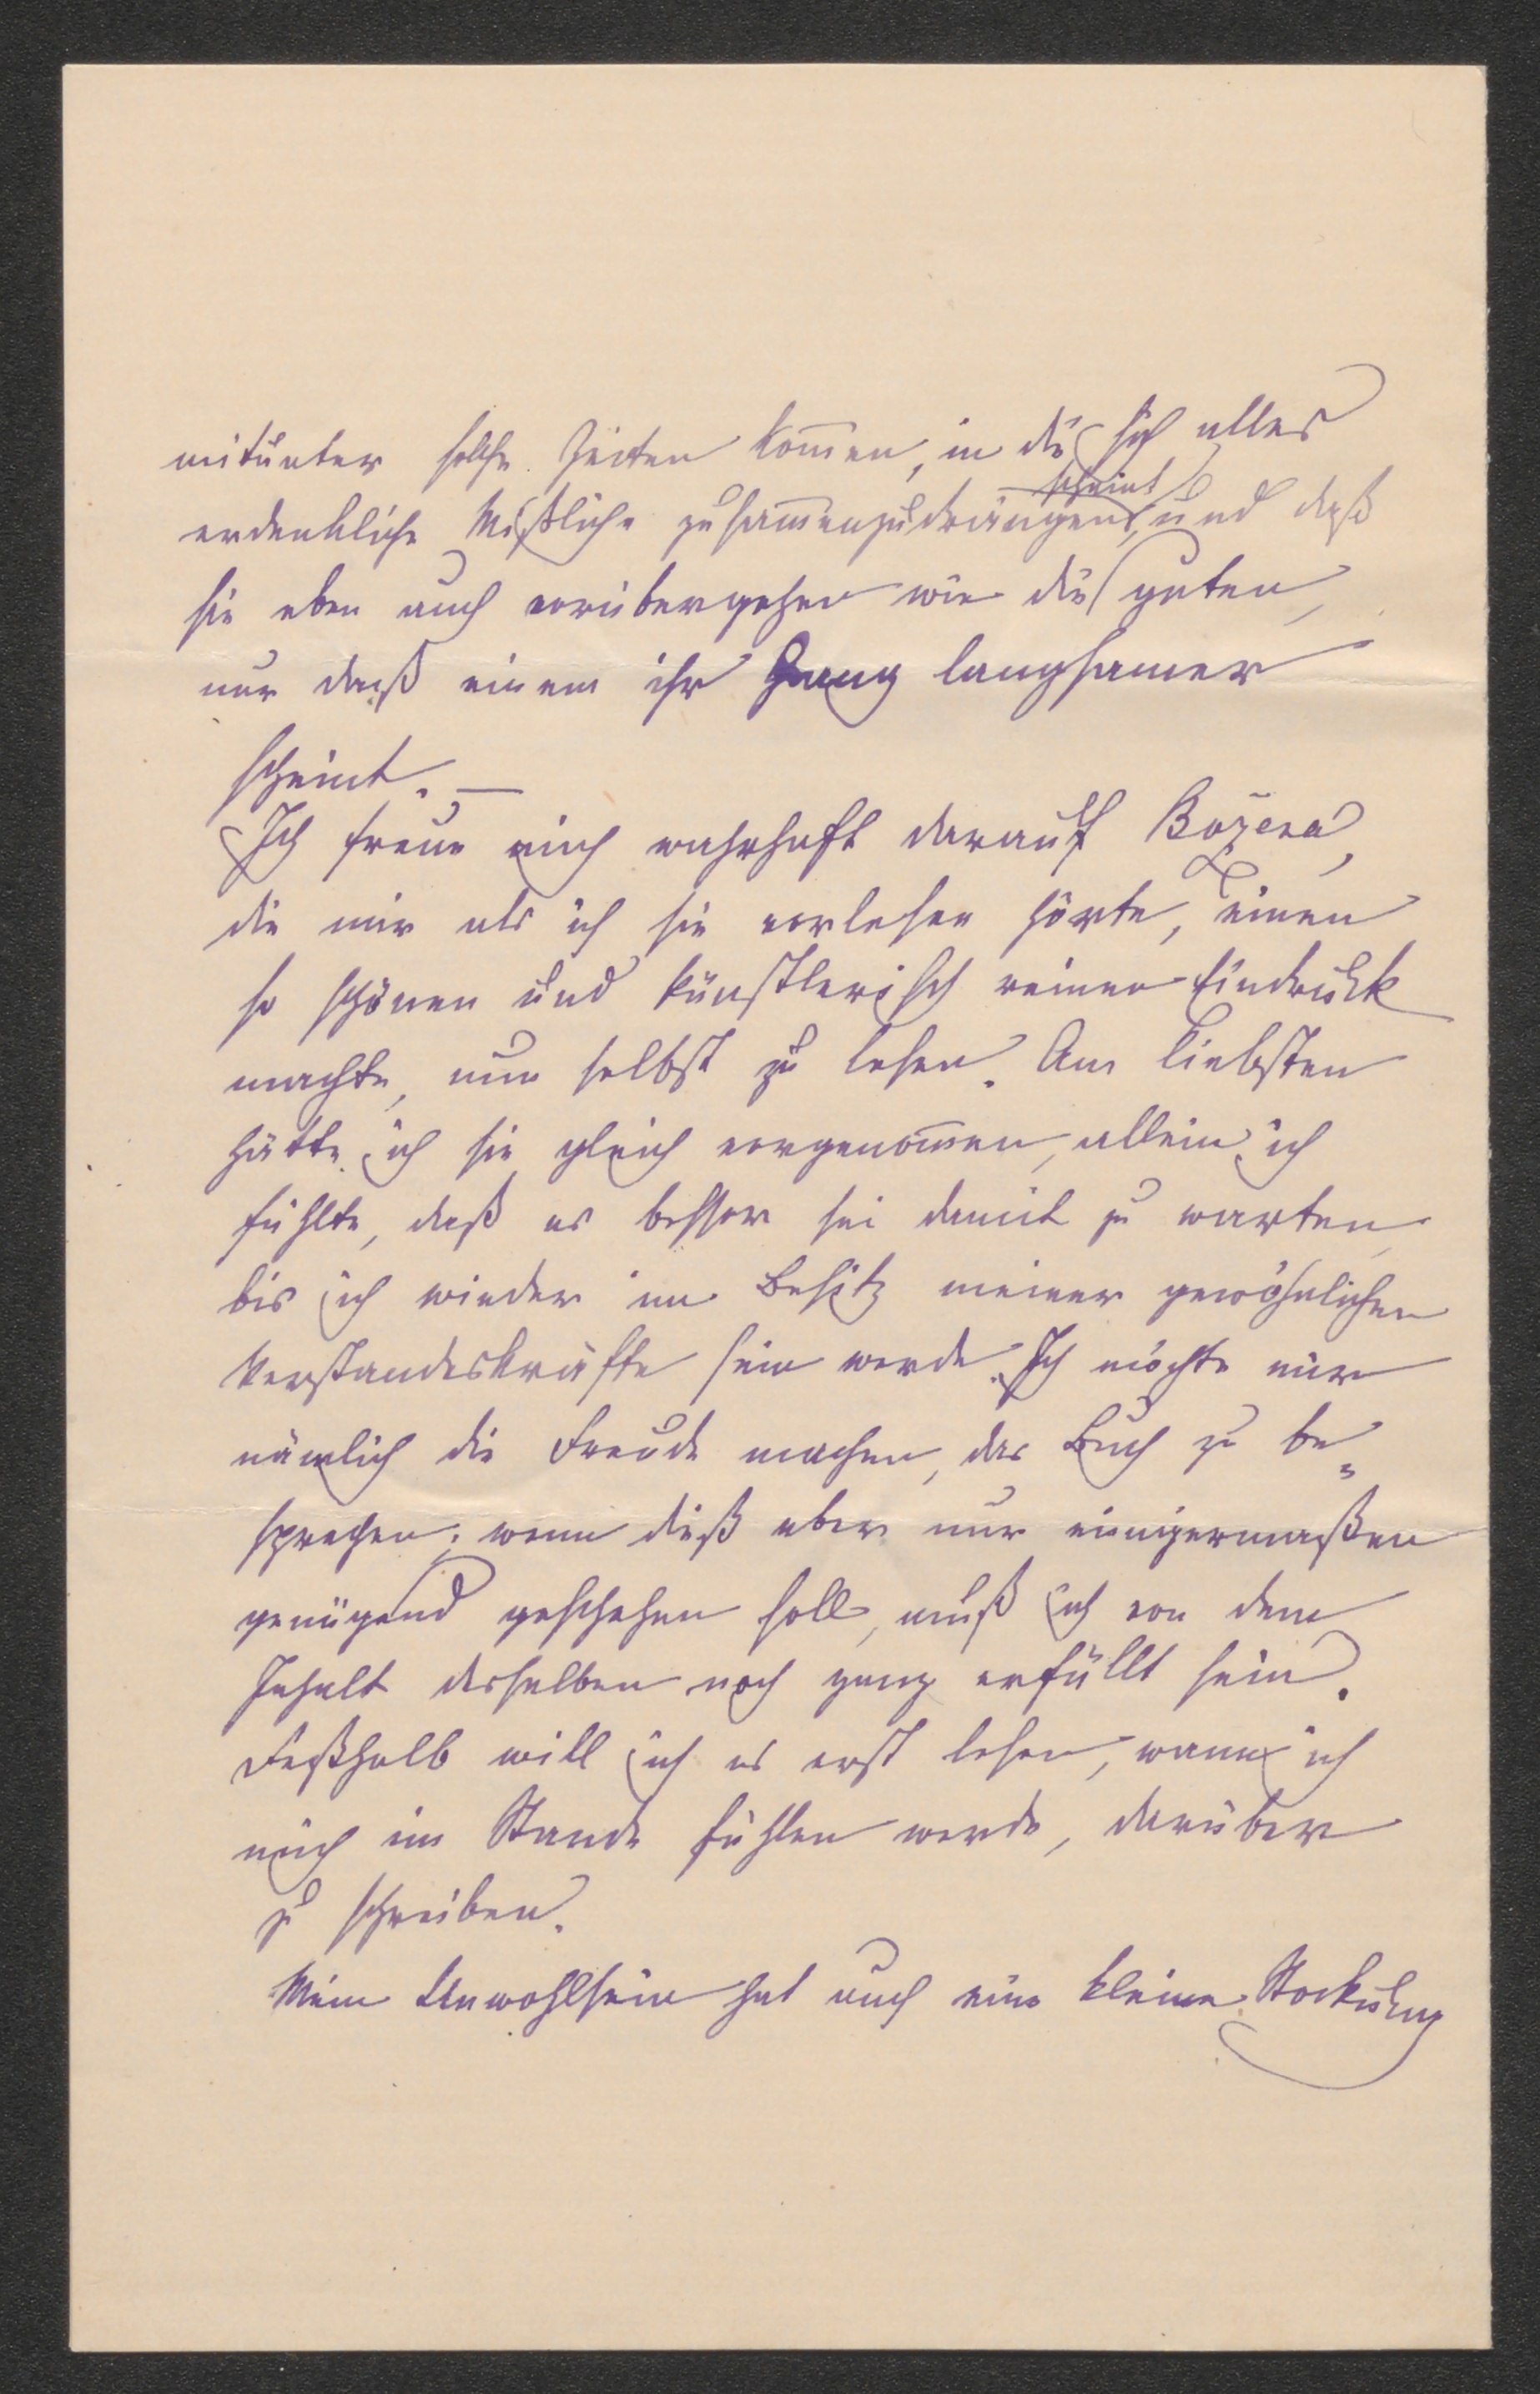 mitunter solche Zeiten kom̅en, in die sich alles
erdenkliche Mißliche zusam̅enzudrängen scheint, und daß
sie eben auch vorübergehen wie die guten,
nur daß einem ihr Gang langsamer
scheint. —
Ich freue mich wahrhaft darauf Božena,
die mir als ich sie vorlesen hörte, einen
so schönen und künstlerisch reinen Eindruck
machte, nun selbst zu lesen. Am liebsten
hätte ich sie gleich vorgenom̅en, allein ich
fühlte, daß es besser sei damit zu warten,
bis ich wieder im Besitz meiner gewöhnlichen
Verstandeskräfte sein werde. Ich möchte mir
nämlich die Freude machen, das Buch zu be=
sprechen; wenn dieß aber nur einigermaßen
genügend geschehen soll, muß ich von dem
Inhalt desselben noch ganz erfüllt sein.
Deßhalb will ich es erst lesen, wann ich
mich im Stande fühlen werde, darüber
zu schreiben.
Mein Unwohlsein hat auch eine kleine Stockung